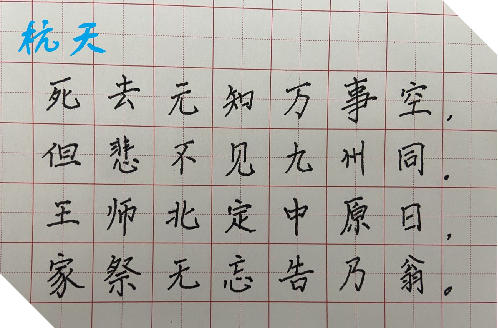 杭天
死去元知万事空,
但悲不见九州同.
王师北定中原日,
家祭无忘告乃翁。